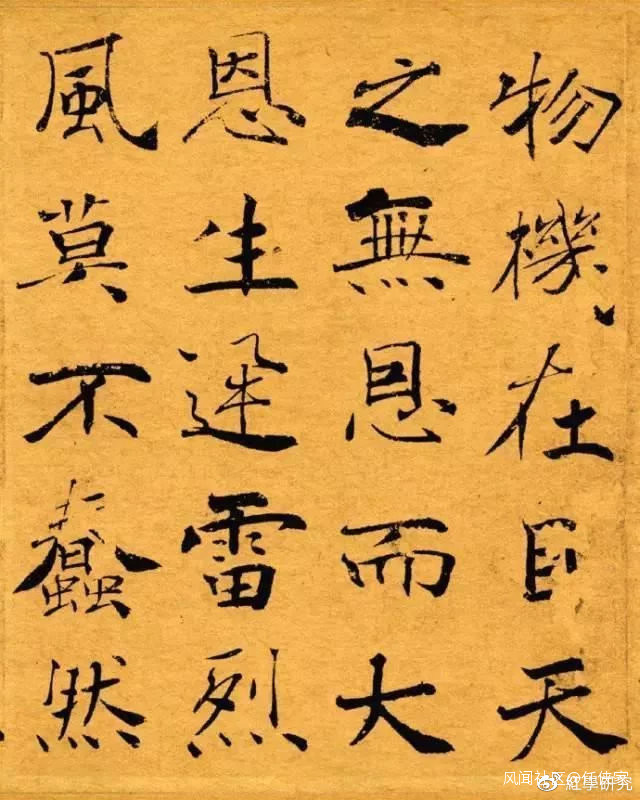 物機在目天
之無恩而大
恩生迅雷烈
風莫不蠢然
风闻社区@
紅學研究